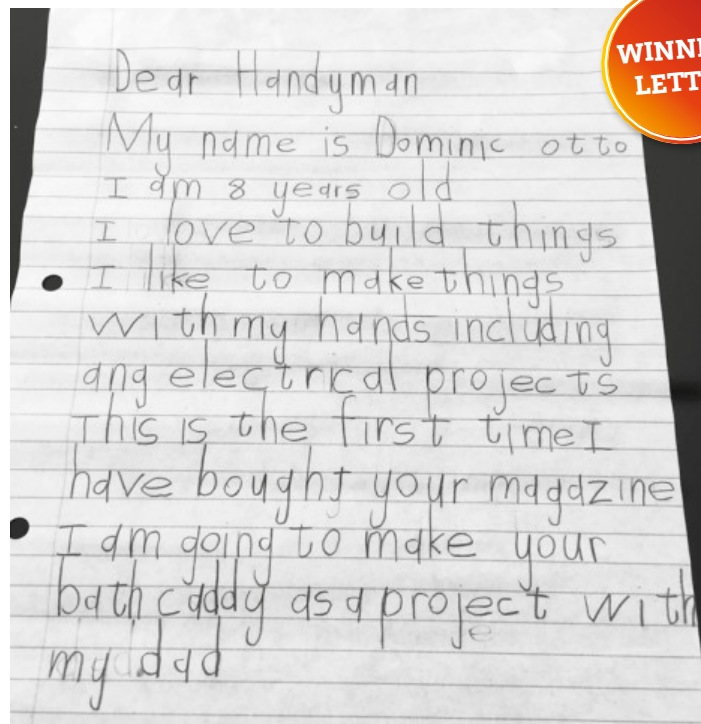 WINNI
LETT
Dear Handyman
My name is Dominic otto
I am 8 years old
I love to build things
I like to make things
with my hands including
ang electrical projects
This is the first time I
have bought your magazine
I am going to make your
bath caddy as a project with
my dad